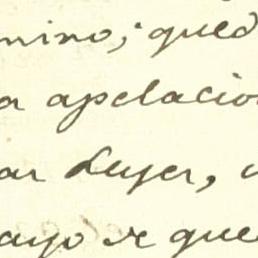 mino; qued
a apelacion
ar Leyer, v
ayo se que